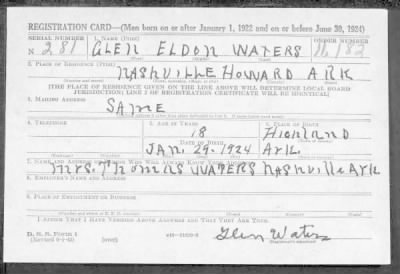 REGISTRATION CARD—(Men born on or after January 1, 1922 and on or before June 30, 1924)
SERIAL NUMBER 1. NAME (Print) ORDER NUMBER
N 281 GLEN ELDON WATERS 11,182
(First) (Middle) (Last)
2. PLACE OF RESIDENCE (Print)
NASHVILLE HOWARD ARK
[THE PLACE OF RESIDENCE GIVEN ON THE LINE ABOVE WILL DETERMINE LOCAL BOARD
JURISDICTION; LINE 2 OF REGISTRATION CERTIFICATE WILL BE IDENTICAL]
3. MAILING ADDRESS
SAME
4. TELEPHONE 5. AGE IN YEARS 6. PLACE OF BIRTH
18 HIGHLAND
DATE OF BIRTH
JAN. 29. 1924 ARK.
7. NAME AND ADDRESS OF PERSON WHO WILL ALWAYS KNOW YOUR ADDRESS
MRS. THOMAS WATERS NASHVILLE ARK
8. EMPLOYER'S NAME AND ADDRESS
9. PLACE OF EMPLOYMENT OR BUSINESS
I AFFIRM THAT I HAVE VERIFIED ABOVE ANSWERS AND THAT THEY ARE TRUE.
D. S. S. Form 1
(over)
Glen Waters